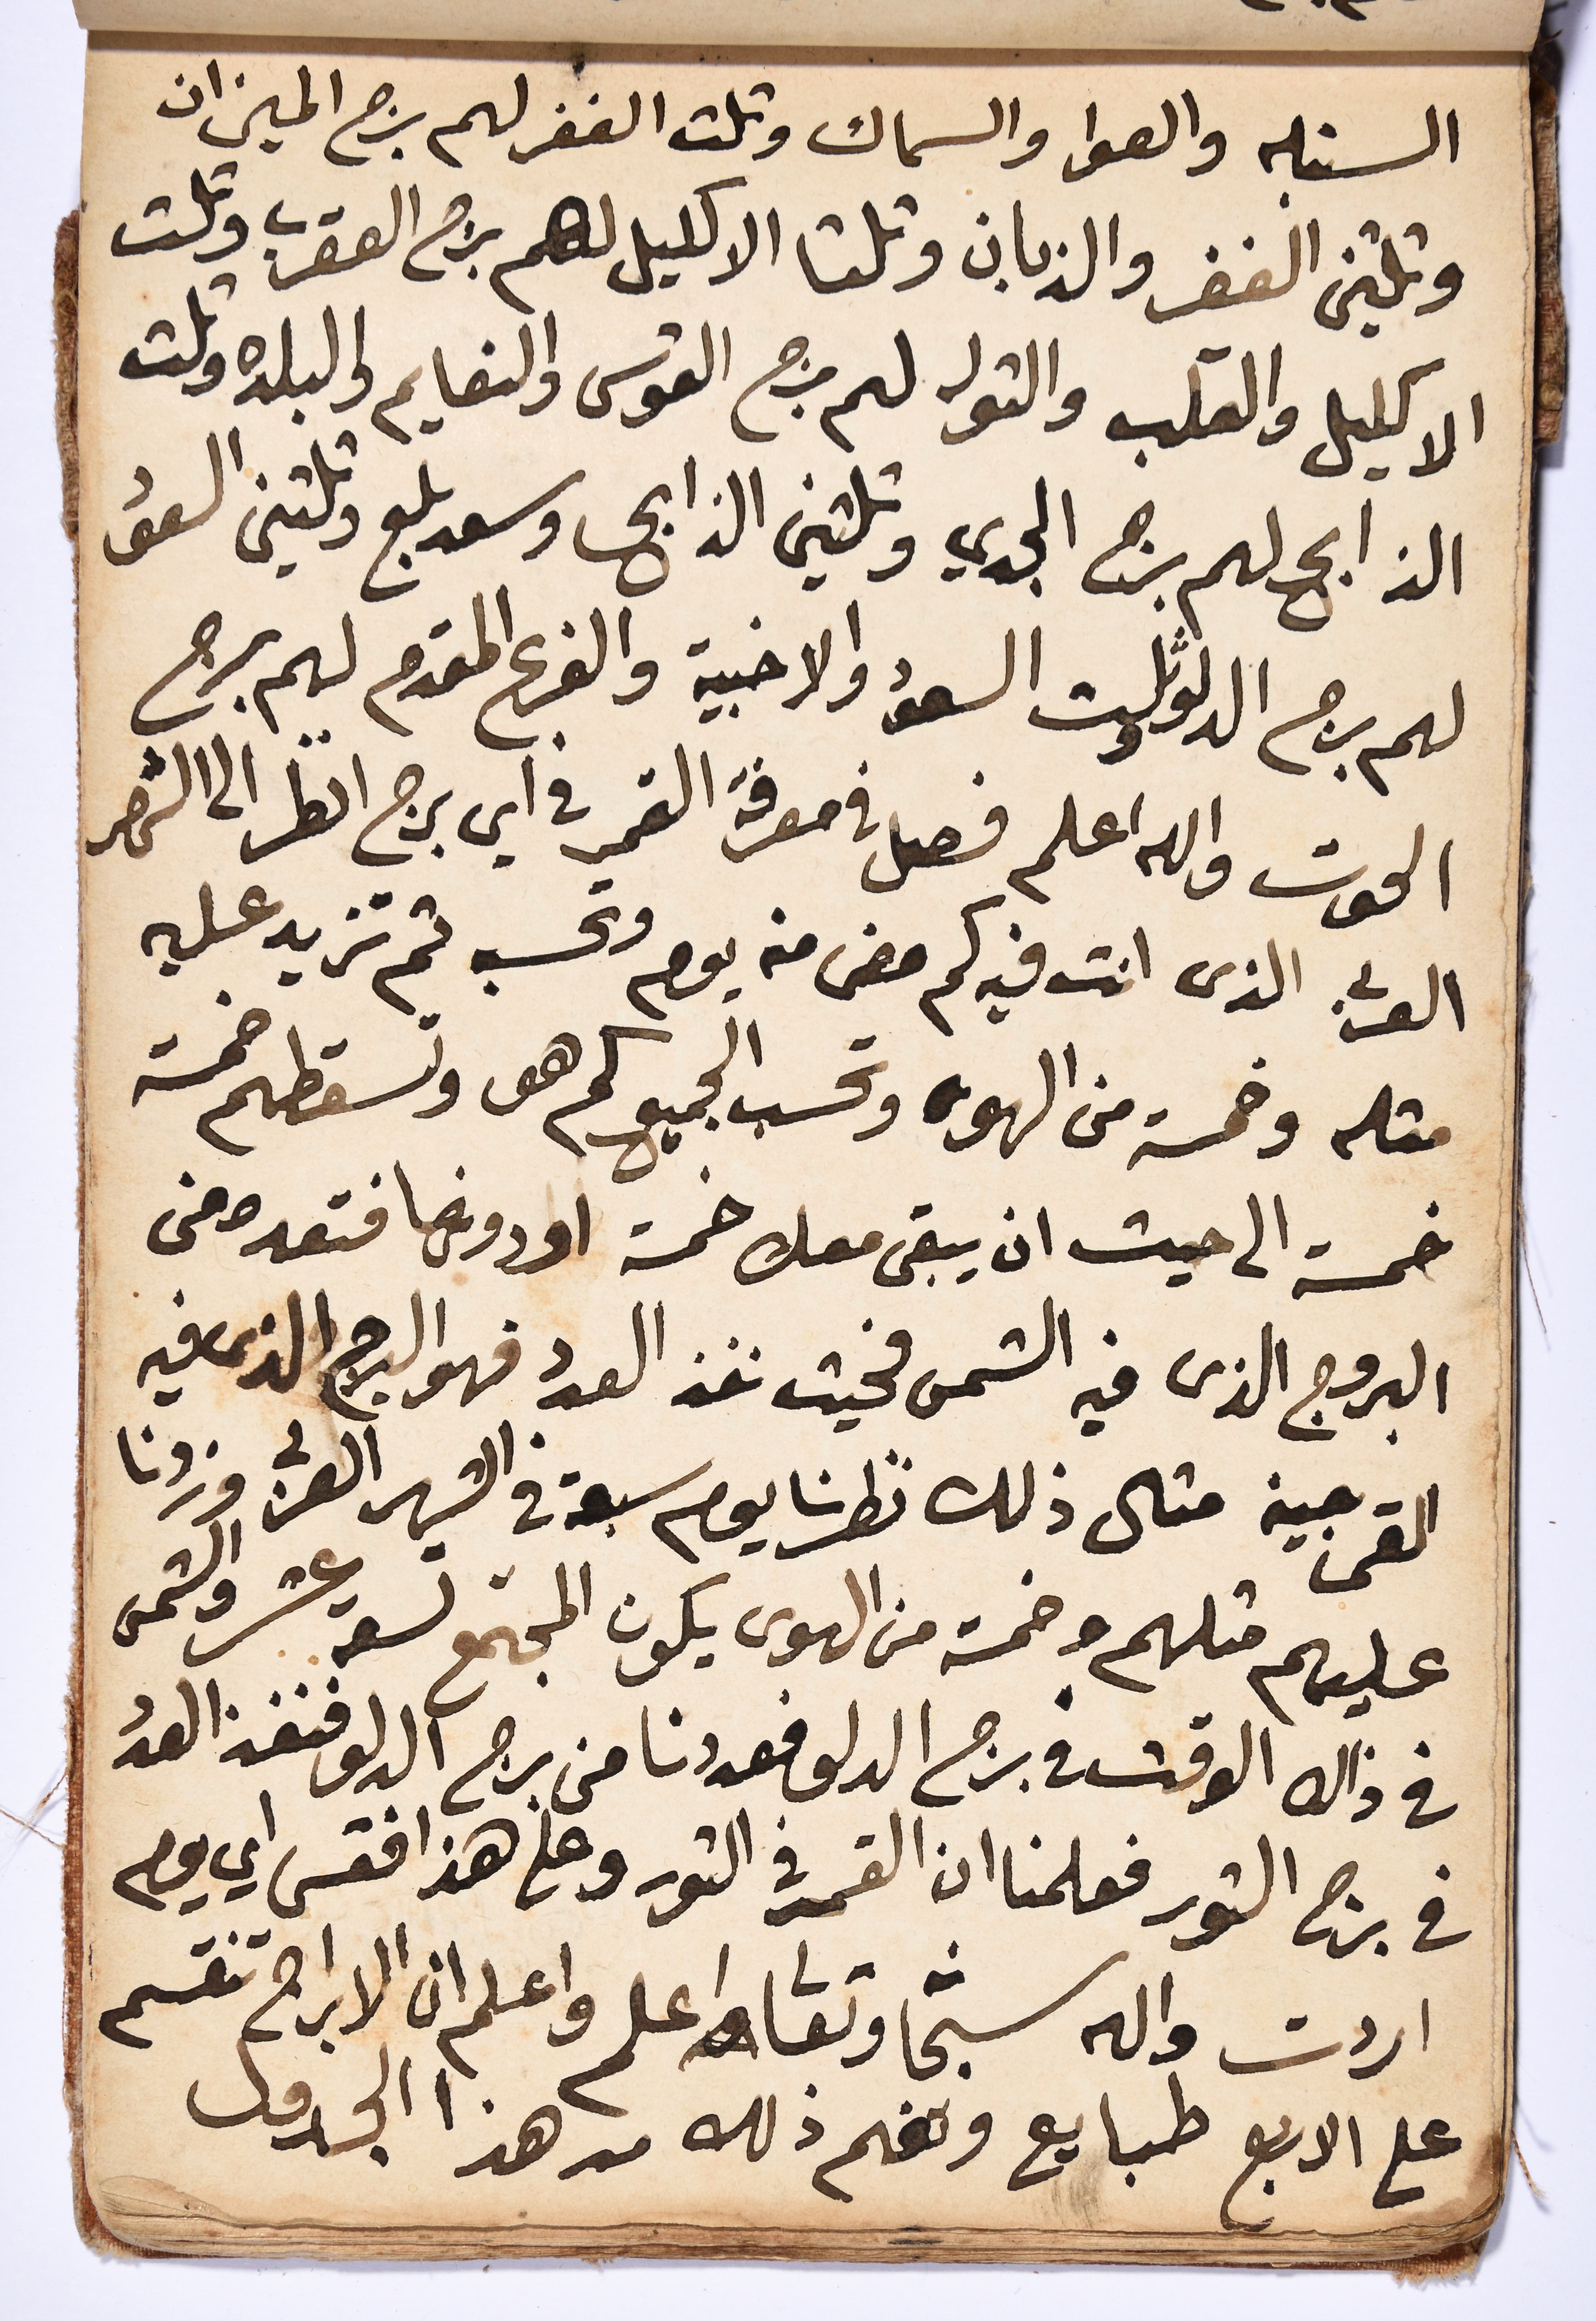 السنبله والعوا والسماك وتلت الغفر لهم برج الميزان
وتلتين الغفر والذبان وتلتا الاكليل لهم برج العقرب وتلت
الاكليل والقلب والتوله لهم برج القوس والنعايم والبلده وتلت
الذابح لهم برج الجدي وتلتين الذابح وسعد بلع وتلتين السعود
لهم برج الدلو وثلت السعود والاخبية والفرع المقدم لهم برج
الحوت والله اعلم فصل في معرفة القمر في اي برج انظر الى الشهر
العربي الذى انت فيه كم مضى منه يوم وتحسب تم تزيد عليه
متله وخمسة من الهوى وتحسب الجميع كم هو وتسقطهم خمسة
خمسة الى حيث ان يبقى معك خمسة او دونها فتعده من
البروج الذى فيه الشمس فحيت نفذ العدد فهو البرج الذى فيه
القمر حينه متال ذلك نظرنا يوم سبعة في الشهر العربي وزدنا
عليهم متلهم وخمسة من الهوى يكون المجتمع تسعه عشر والشمس
في ذالك الوقت في برج الدلو فعددنا من برج الدلو فنفذ العدد
في برج التور فعلمنا ان القمر في التور وعلى هذا فقس اي يوم
اردت والله سبحانه وتعالى اعلم واعلم ان الابراج تنقسم
على الاربع طبايع وتفهم ذلك من هذا الجدول